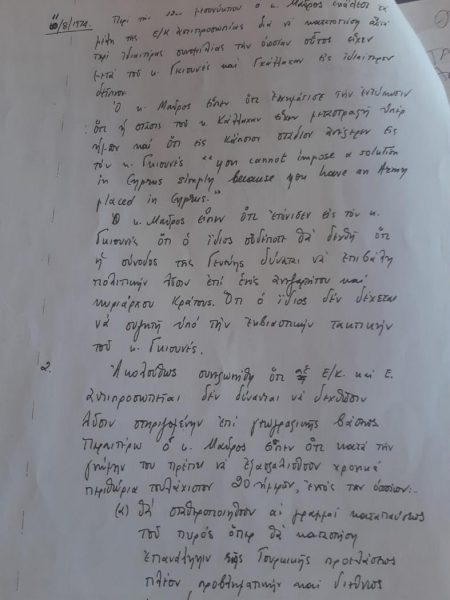 11/8/1974. Περί την 12ην μεσονύκτιον ο κ. Μαύρος εκάλεσε τα
μέλη της Ε/Κ αντιπροσωπίας διά νά κατατοπίση αυτά
περί ιδιαιτέρας συνομιλίας την οποίαν ούτος είχεν
μετά του κ. Γκιουνές και Γκάλλαχαν εις ιδιαίτερον
δείπνον.
Ο κ. Μαύρος είπεν ότι εσχημάτισε την εντύπωσιν
ότι ή στάσις του κ. Κάλλαχαν είχεν μεταστραφή υπέρ
ημών καί ότι εις κάποιον στάδιον ανέφερεν εις
τον κ. Γκιουνές "you cannot impose a solution
in Cyprus simply because you have an Army
placed in Cyprus."
Ο κ. Μαύρος είπεν ότι ετόνισεν εις τον κ.
Γκιουνές ότι ο ίδιος ουδέποτε θά δεχθή ότι
ή σύνοδος της Γενεύης δύναται νά επιβάλη
πολιτικήν λύσιν επί ενός ανεξαρτήτου καί
κυριάρχου Κράτους. Ότι ο ίδιος δέν δέχεται
νά συζητή υπό την εκβιαστικήν τακτικήν
του κ. Γκιουνές.
2. Ακολούθως συνεφωνήθη ότι οι Ε/Κ. καί Ε.
αντιπροσωπείαι δέν δύνανται νά δεχθούν
λύσιν στηριζομένην επί γεωγραφικής βάσεως
Περαιτέρω ο κ. Μαύρος είπεν ότι κατά την
γνώμην του πρέπει νά εξασφαλισθούν χρονικά
περιθώρια τουλάχιστον 20 ημερών, εντός των οποίων:-
(α) θά σταθεροποιηθούν αι γραμμαί καταπαύσεως
του πυρός όπερ θά καταστήση
επανάληψιν της Τουρκικής προελάσεως
πλέον προβληματικήν καί διεθνώς